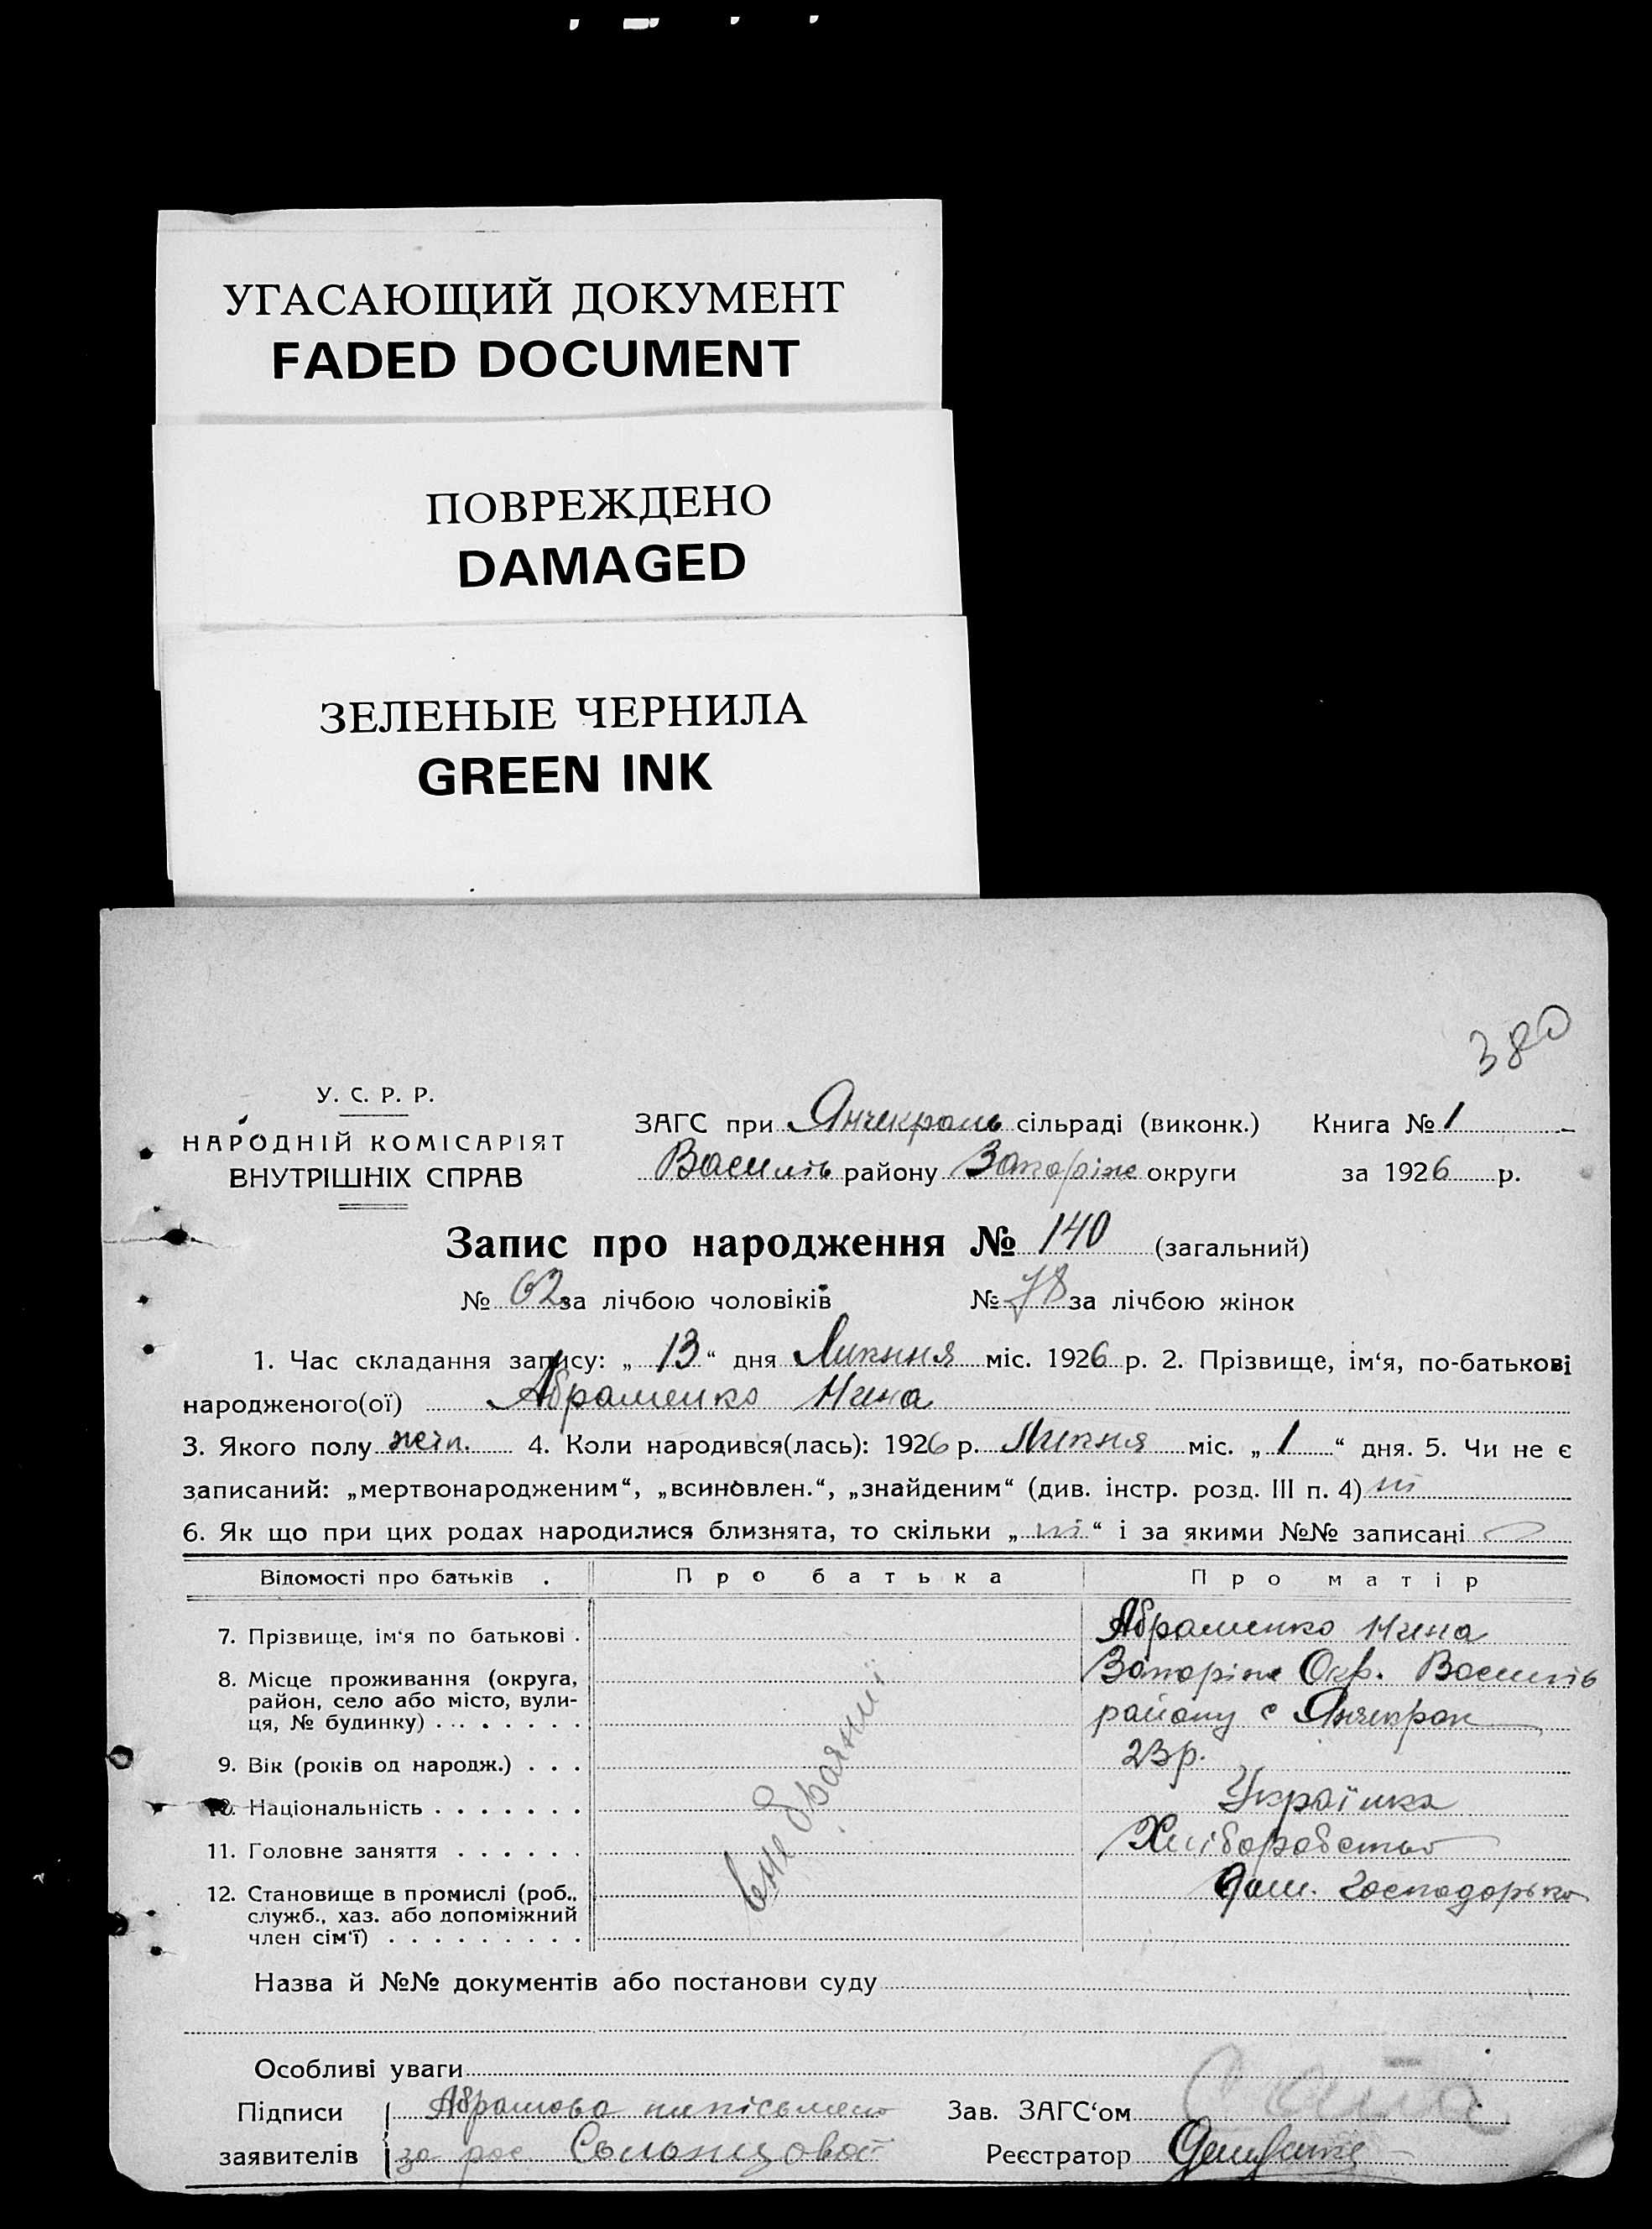 УГАСАЮЩИЙ ДОКУМЕНТ
FADED DOCUMENT
ПОВРЕЖДЕНО
DAMAGED
ЗЕЛЕНЫЕ ЧЕРНИЛА
GREEN INK
380
У. С. Р. Р.
НАРОДНІЙ КОМІСАРІЯТ
ВНУТРІШНІХ СПРАВ
ЗАГС при Янчекрань сільраді (виконк.) Книга № 1
Василів району Запоріже округи за 1926 р.
Запис про народження № 140 (загальний)
№ 62 за лічбою чоловіків № 78 за лічбою жінок
1. Час складання запису: „ 13 “ дня Липння міс. 1926 р. 2. Прізвище, ім‘я, по-батькові
народженого(ої) Абраменко Нина
3. Якого полу жен. 4. Коли народився(лась): 1926 р. Липня міс. „ 1 “ дня. 5. Чи не є
записаний: „мертвонародженим“, „всиновлен.“, „знайденим“ (див. інстр. розд. III п. 4) ні
6. Як що при цих родах народилися близнята, то скільки „ ні “ і за якими №№ записані
Відомості про батьків . Про батька Про матір
7. Прізвище, ім‘я по батькові . Абраменко Нина
8. Місце проживання (округа, Запоріже Окр. Василів
район, село або місто, вули- району с Янчекрак
ця, № будинку) . . . . . . .
9. Вік (років од народж.) . . . 23 р.
10. Національність . . . . . . . Українка
11. Головне заняття . . . . . . Хліборобство
12. Становище в промислі (роб., Дом. Господарько
служб., хаз. або допоміжний
член сім‘ї) . . . . . . . . .
Назва й №№ документів або постанови суду
Особливі уваги
Підписи Абрамова неписьмено Зав. ЗАГС‘ом
заявителів за рос Солонцовой Реєстратор